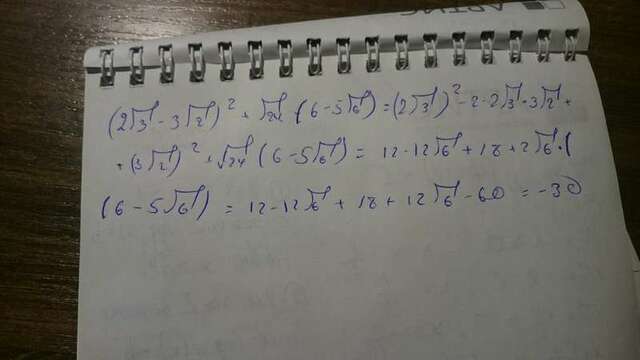 АРТИС
(2√3 - 3√2)² + √24 · (6 - 5√6) = (2√3)² - 2·2√3·3√2 +
+ (3√2)² + √24 (6 - 5√6) = 12 - 12√6 + 18 + 2√6·(
(6 - 5√6) = 12 - 12√6 + 18 + 12√6 - 60 = -30